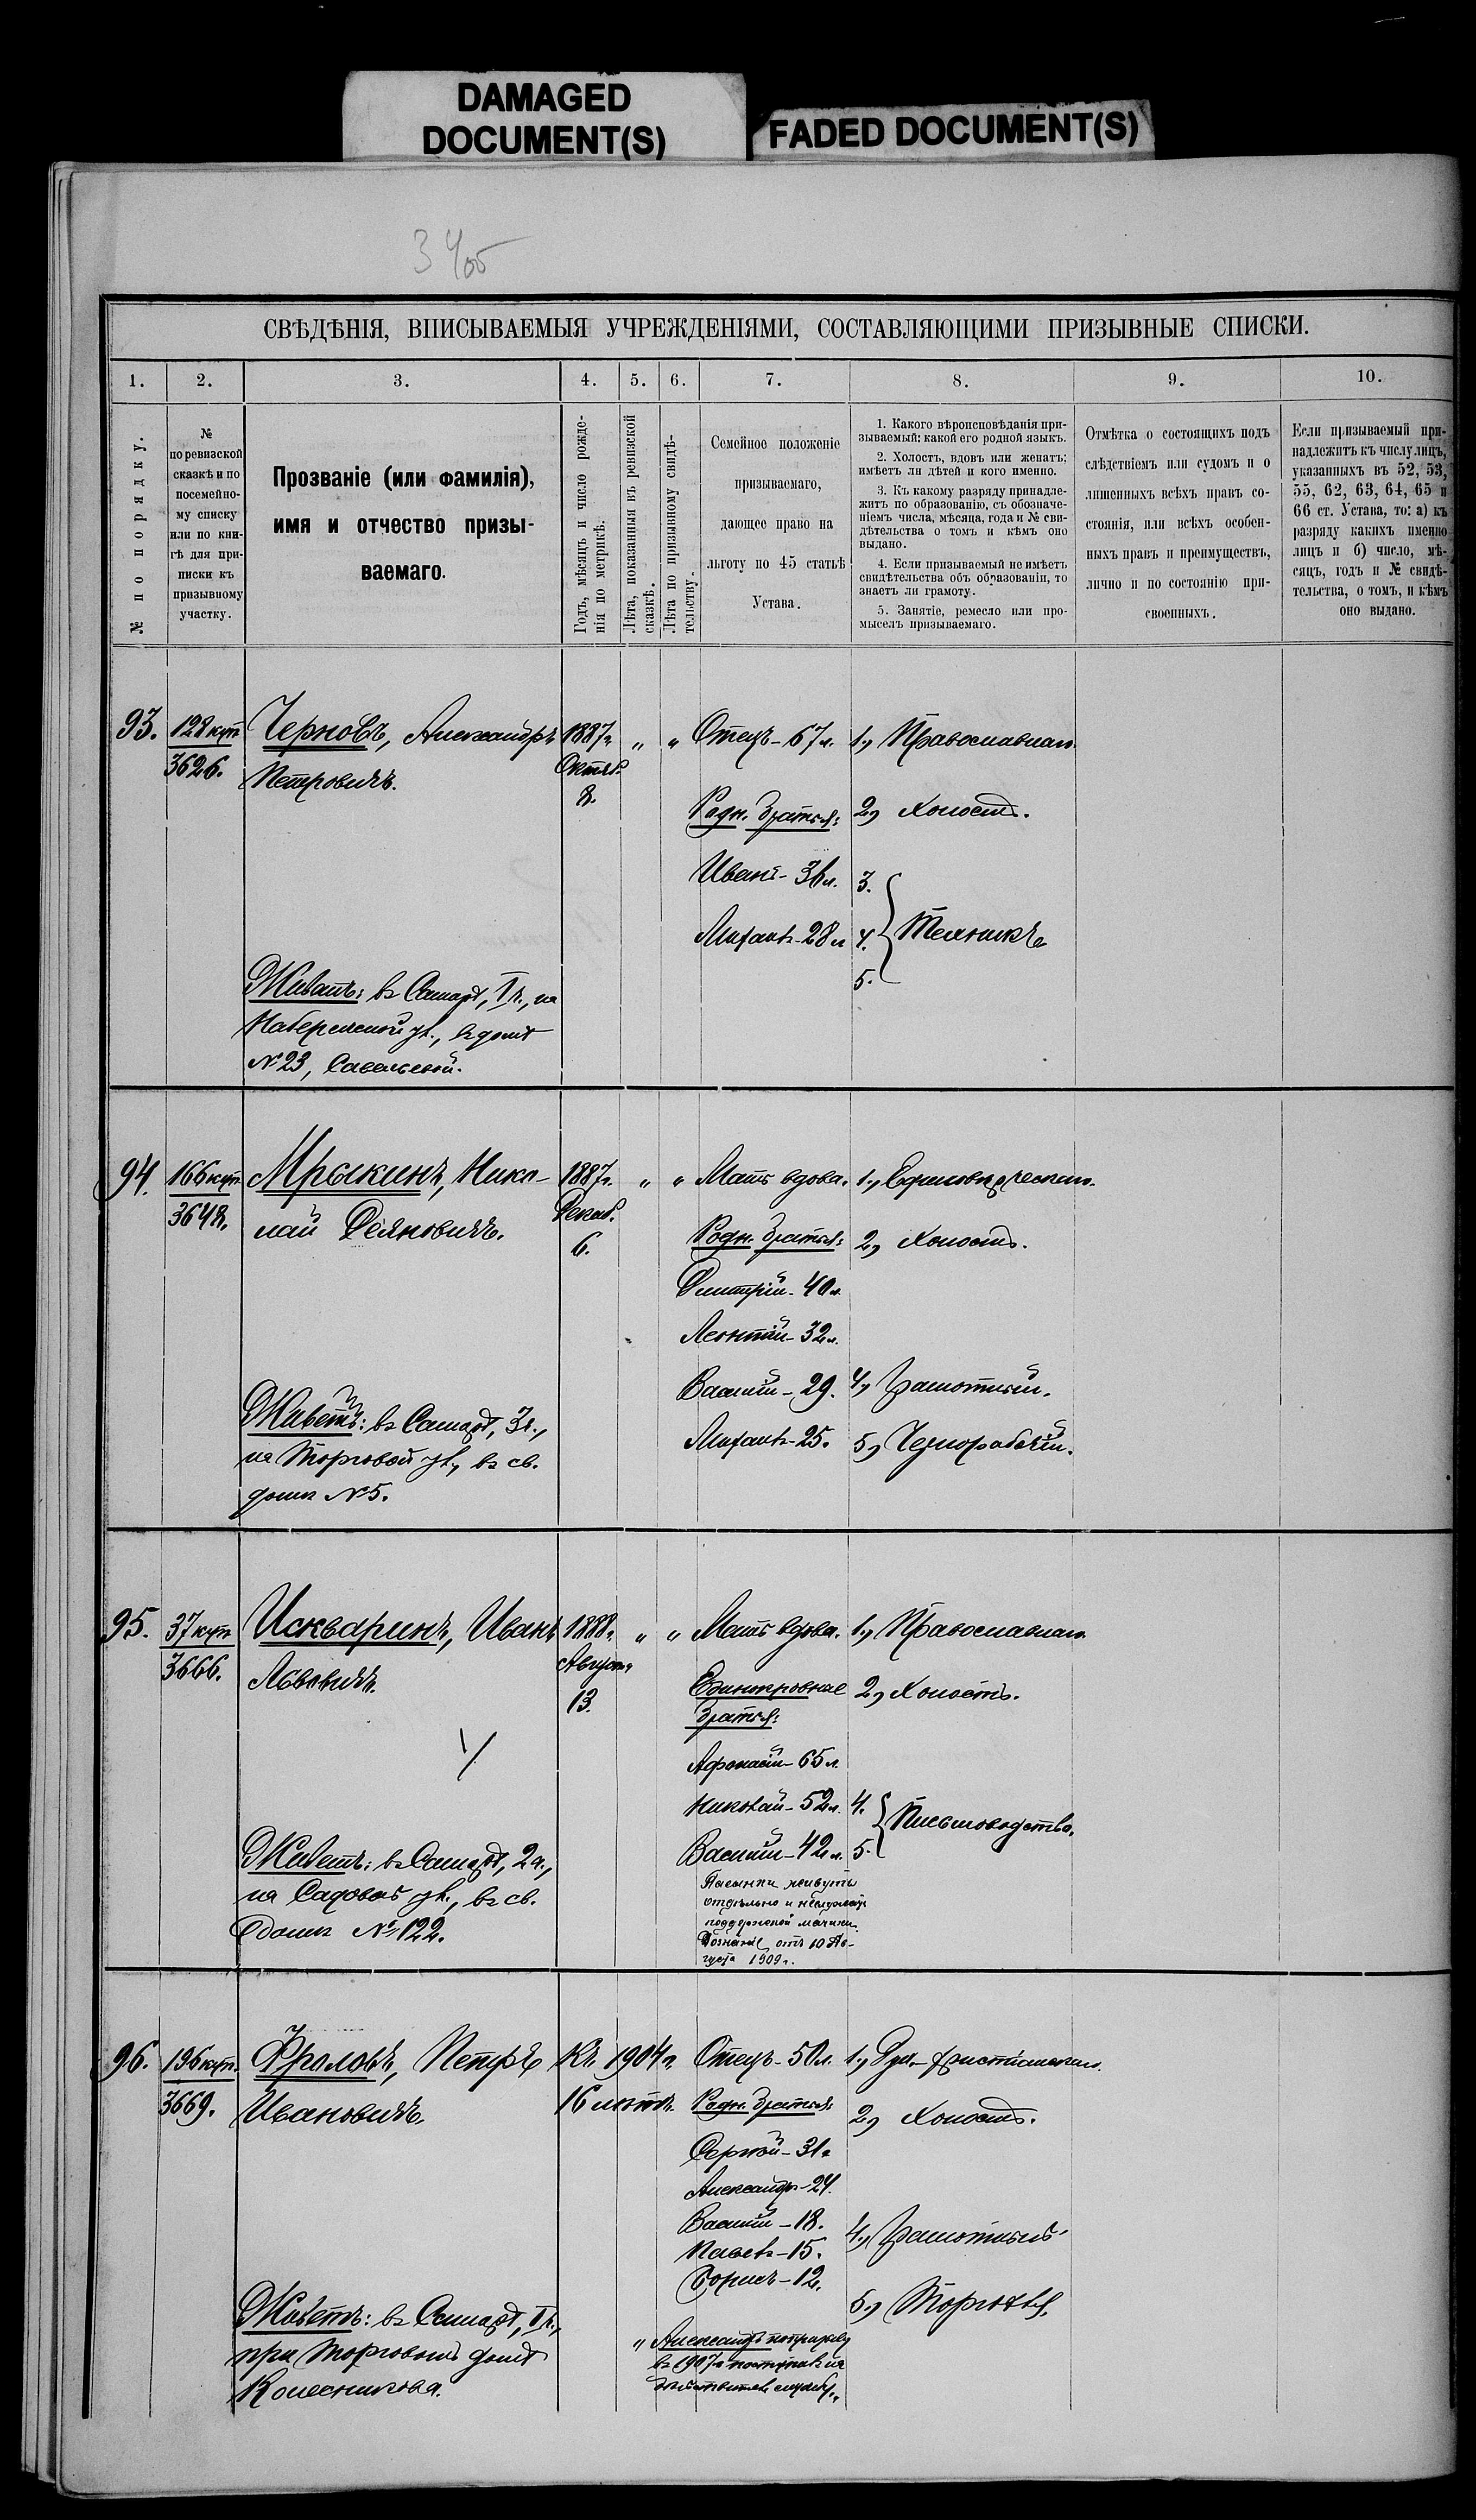 DAMAGED
DOCUMENT(S)
FADED DOCUMENT(S)
СВѢДѢНІЯ, ВПИСЫВАЕМЫЯ УЧРЕЖДЕНІЯМИ, СОСТАВЛЯЮЩИМИ ПРИЗЫВНЫЕ СПИСКИ.
1.
2.
3.
4.
5.
6.
7.
8.
9.
10.
№ по порядку.
№
по ревизской
сказкѣ и по
посемейно-
му списку
или по кни-
гѣ для при-
писки къ
призывному
участку.
Прозваніе (или фамилія),
имя и отчество призы-
ваемаго.
Годъ, мѣсяцъ и число рожде-
нія по метрикѣ.
Лѣта, показанныя въ ревизской
сказкѣ.
Лѣта по призывному свидѣ-
тельству.
Семейное положеніе
призываемаго,
дающее право на
льготу по 45 статьѣ
Устава.
1. Какого вѣроисповѣданія при-
зываемый; какой его родной языкъ.
2. Холостъ, вдовъ или женатъ;
имѣетъ ли дѣтей и кого именно.
3. Къ какому разряду принадле-
житъ по образованію, съ обозначе-
ніемъ числа, мѣсяца, года и № сви-
дѣтельства о томъ и кѣмъ оно
выдано.
4. Если призываемый не имѣетъ
свидѣтельства объ образованіи, то
знаетъ ли грамоту.
5. Занятіе, ремесло или про-
мыселъ призываемаго.
Отмѣтка о состоящихъ подъ
слѣдствіемъ или судомъ и о
лишенныхъ всѣхъ правъ со-
стоянія, или всѣхъ особен-
ныхъ правъ и преимуществъ,
лично и по состоянію при-
своенныхъ.
Если призываемый при-
надлежитъ къ числу лицъ,
указанныхъ въ 52, 53,
55, 62, 63, 64, 65 и
66 ст. Устава, то: а) къ
разряду какихъ именно
лицъ и б) число, мѣ-
сяцъ, годъ и № свидѣ-
тельства, о томъ, и кѣмъ
оно выдано.
93.
128 куп.
3626.
Черновъ, Александръ
Петровичъ.
1887 г.
Октяб.
8.
„
„
Отецъ - 67 л.
Родн. братья:
Иванъ - 36 л.
Михаилъ - 28 л.
1., Православнаго.
2., Холостъ.
3.
4.
5.
Живетъ: въ Самарѣ, I ч., на
Набережной ул., въ домѣ
№ 23, Савельевой.
94.
166 куп.
3648.
Мрыкинъ, Нико-
лай Деяновичъ.
1887 г.
Декаб.
6.
„
„
Мать вдова.
Родн. братья:
Дмитрій - 40 л.
Леонтій - 32 л.
Василій - 29.
Михаилъ - 25.
1., Единовѣрческаго.
2., Холостъ.
4., Грамотный.
5., Чернорабочій.
Живетъ: въ Самарѣ, 3 ч.,
на Торговой ул., въ св.
домѣ № 5.
95.
37 куп.
3666.
Искваринъ, Иванъ
Львовичъ.
1888 г.
Августа
13.
„
„
Мать вдова.
Единокровные
братья:
Афонасій - 65 л.
Николай - 52 л.
Василій - 42 л.
Пасынки живутъ
отдѣльно и не служатъ
поддержкой мачихи.
Дознаніе отъ 10 Ав-
густа 1909 г.
1., Православнаго
2., Холостъ.
4.
5.
Письмоводство.
Живетъ: въ Самарѣ, 2 ч.,
на Садовой ул., въ св.
домѣ № 122.
96.
196 куп.
3669.
Фроловъ, Петръ
Ивановичъ.
Къ 1904 г.
16 лѣтъ.
Отецъ - 50 л.
Родн. братья:
Сергѣй - 31.
Александръ - 24.
Василій - 18.
Павелъ - 15.
Борисъ - 12.
1., Дух. христіанскаго.
2., Холостъ.
4., Грамотный.
5., Торговля.
Живетъ: въ Самарѣ, I ч.,
при Торговомъ домѣ
Колесникова.
„ Александръ по призыву
въ 1907 г. поступилъ на
дѣйствител. службу. „